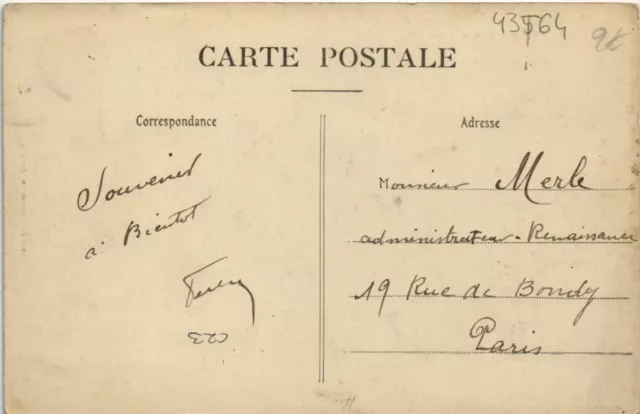 43564
CARTE POSTALE
Correspondance
Souvenir
à Bientot
C23
Adresse
Monsieur Merle
administrateur - Renaissance
19 Rue de Bondy
Paris